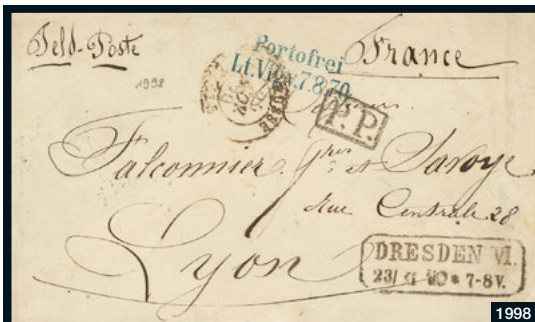 Feld-Poste
France
Portofrei
Lt. Vfgv. 7.8.70.
1998
P.P.
Falconnier frères et Savoye
Rue Centrale 28
Lyon
DRESDEN VI.
23/ 70 * 7-8V.
1998